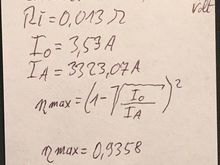 Volt
Ri = 0,013 Ω
I₀ = 3,59 A
I_A = 3323,07 A
η max = (1 - √(I₀/I_A))²
η max = 0,9358